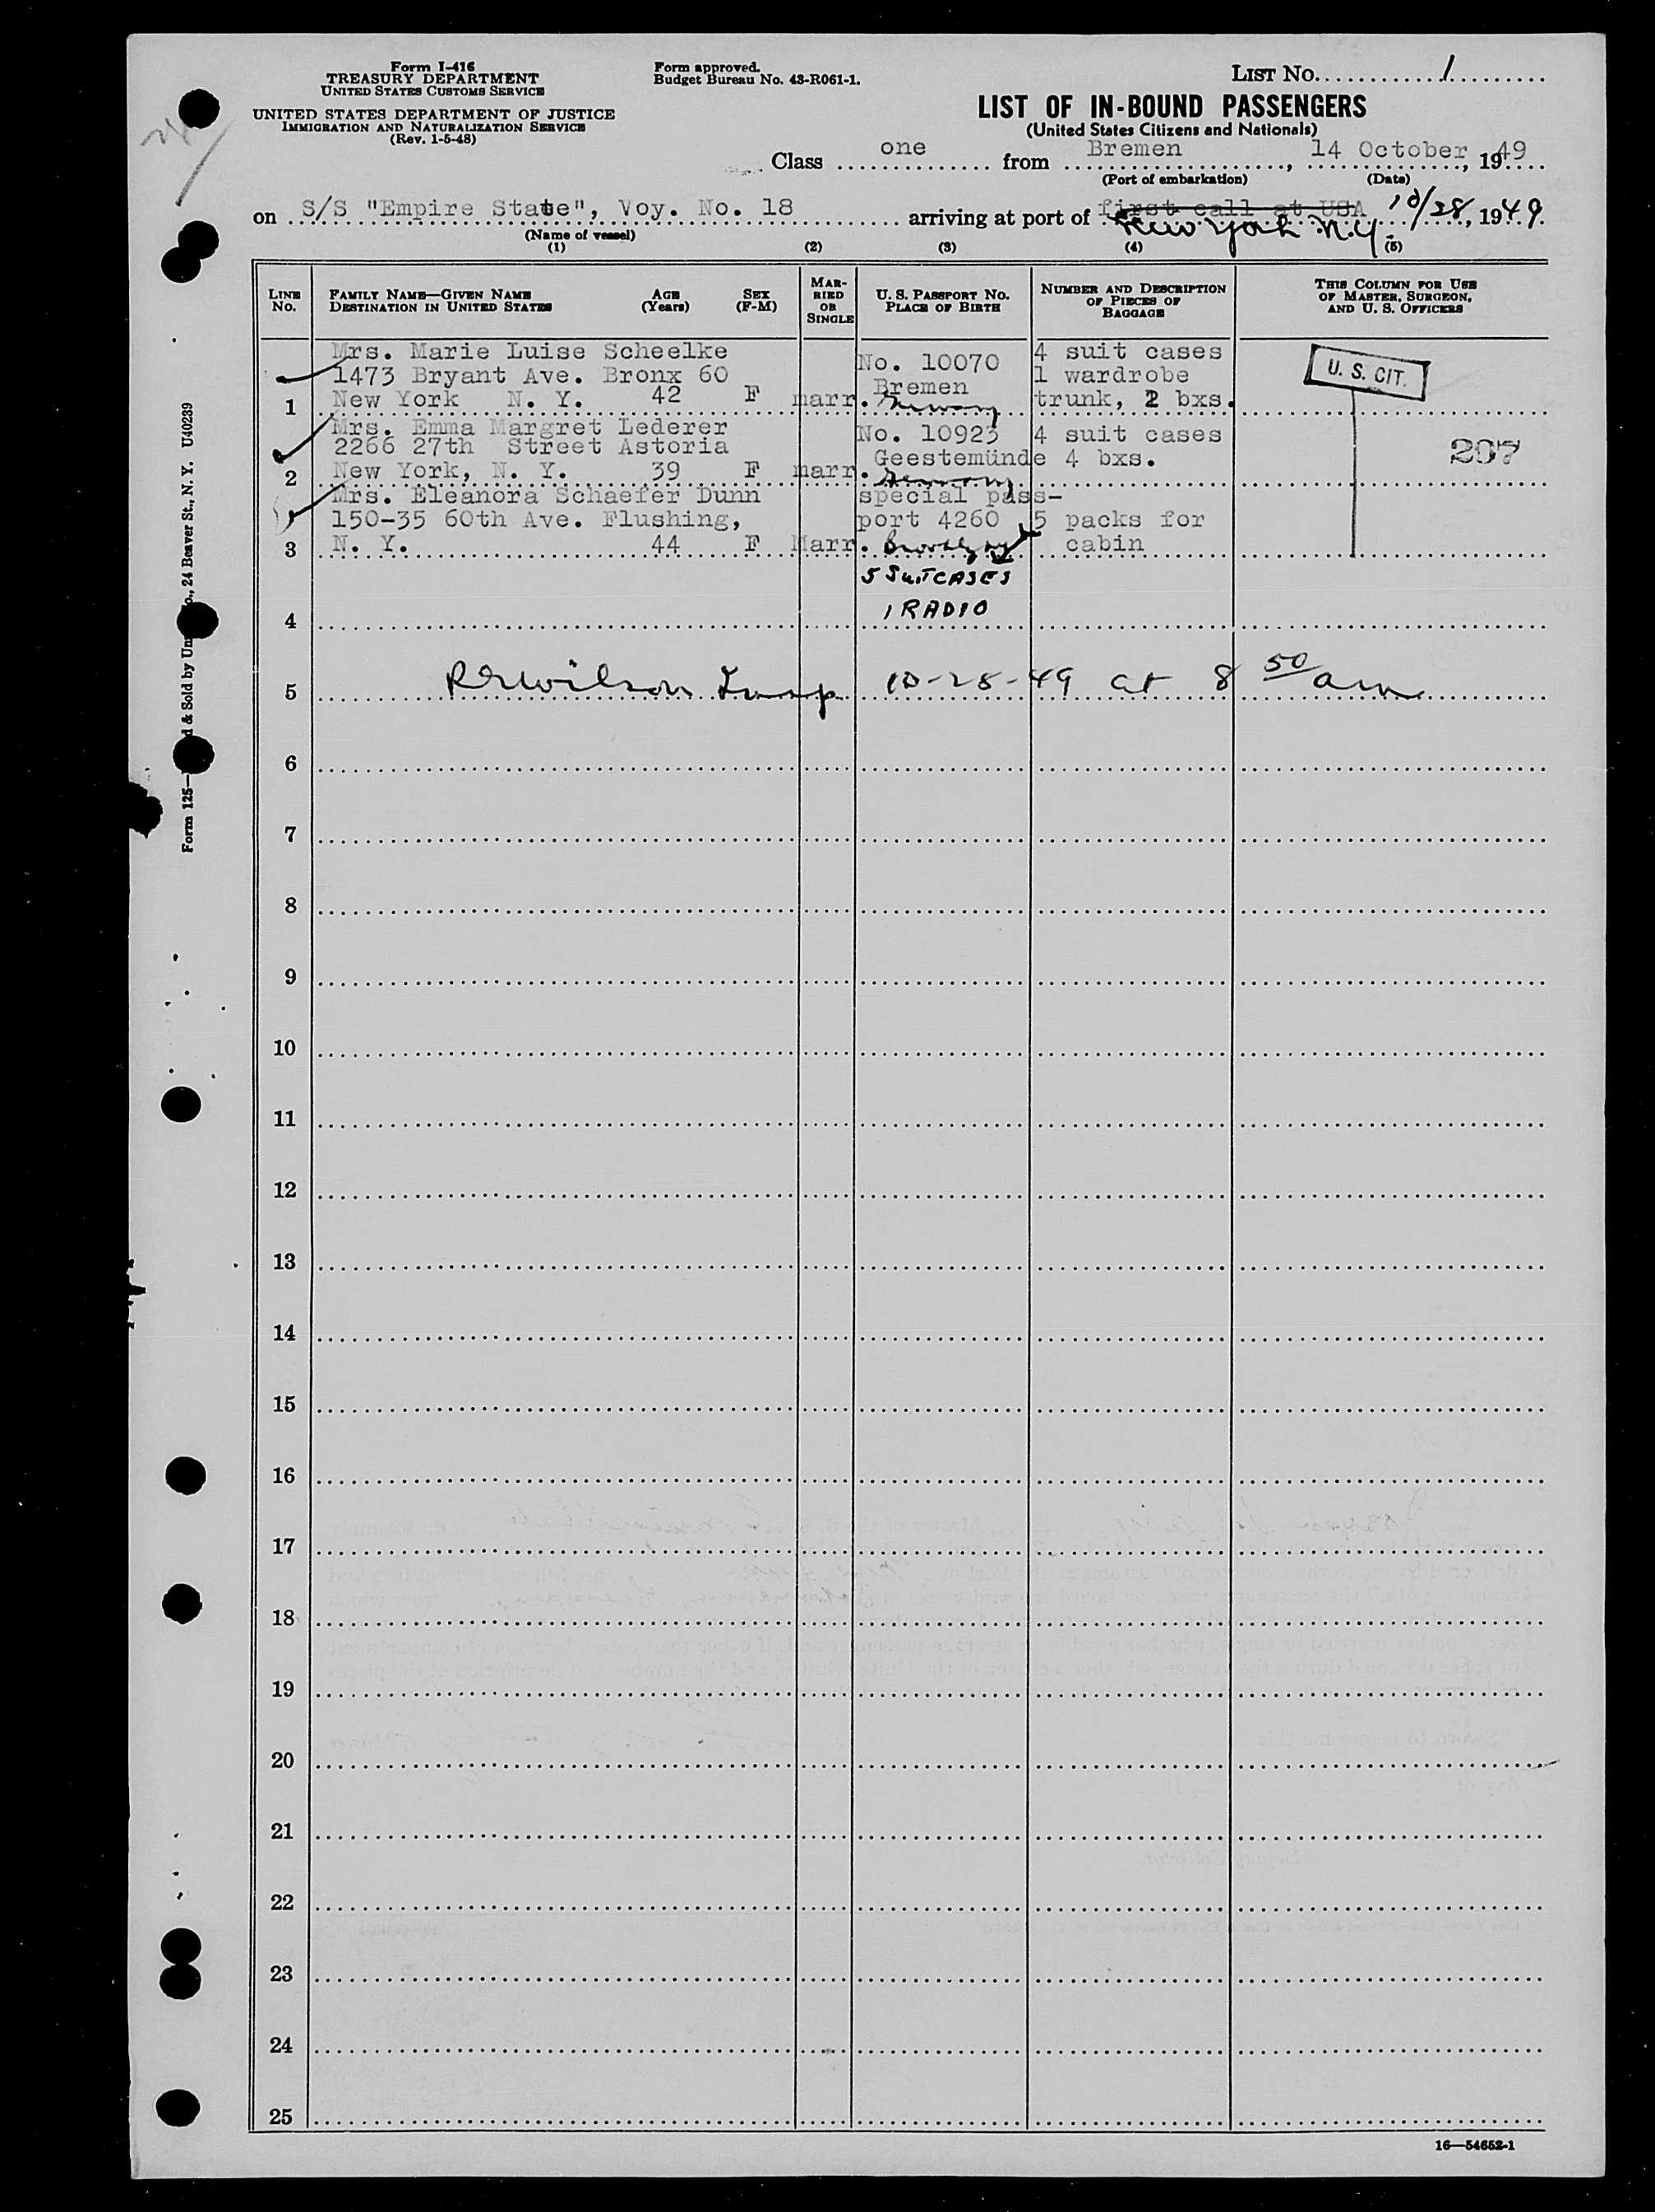 Form I-416
TREASURY DEPARTMENT
UNITED STATES CUSTOMS SERVICE
UNITED STATES DEPARTMENT OF JUSTICE
IMMIGRATION AND NATURALIZATION SERVICE
(Rev. 1-5-48)
Form approved.
Budget Bureau No. 43-R061-1.
LIST NO. 1
LIST OF IN-BOUND PASSENGERS
(United States Citizens and Nationals)
Class one from Bremen, 14 October, 1949
(Port of embarkation) (Date)
on S/S "Empire State", Voy. No. 18 arriving at port of first call at USA 10/28, 1949.
New York N.Y.
(Name of vessel)
(1) (2) (3) (4) (5)
LINE NO.
FAMILY NAME—GIVEN NAME
DESTINATION IN UNITED STATES
AGE (Years)
SEX (F-M)
MARRIED OR SINGLE
U. S. PASSPORT NO.
PLACE OF BIRTH
NUMBER AND DESCRIPTION OF PIECES OF BAGGAGE
THIS COLUMN FOR USE OF MASTER, SURGEON, AND U. S. OFFICERS
Mrs. Marie Luise Scheelke
1473 Bryant Ave. Bronx 60
1 New York N. Y. 42 F marr.
No. 10070
Bremen
Germany
4 suit cases
1 wardrobe
trunk, 2 bxs.
U. S. CIT.
Mrs. Emma Margret Lederer
2266 27th Street Astoria
2 New York, N. Y. 39 F marr.
No. 10923
Geestemünde
Germany
4 suit cases
4 bxs.
207
Mrs. Eleanora Schaefer Dunn
150-35 60th Ave. Flushing,
3 N. Y. 44 F Marr.
special pass-
port 4260
Brooklyn NY
5 packs for
cabin
5 SUITCASES
1 RADIO
4
5 REWilson Insp 10-28-49 at 8 50 am
6
7
8
9
10
11
12
13
14
15
16
17
18
19
20
21
22
23
24
25
16—54652-1
Form 125— d & Sold by Un o., 24 Beaver St., N. Y. U40239